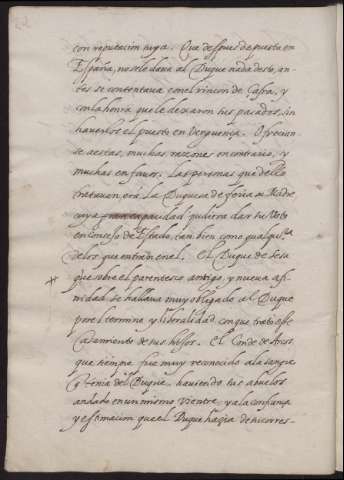 con reputacion suya. Que despues de puesta en
España, no se le dava al Duque nada desto, an-
tes se contentava con el rincon de Çafra, y
con la honra que le dexaron sus pasados, sin
haverlos el puesto en verguença. Ofrecian-
se a estas, muchas razones en contrario, y
muchas en favor. Las personas que dello
tratavan, era la Duquesa de feria su Madre
cuya gran capacidad pudiera dar su voto
en consejo de Estado, tan bien como qualquiera
de los que entran en el. El Duque de Sesa
que sobre el parentesco antigo, y nueva afi-
nidad se hallava muy obligado al Duque
por el termino y liberalidad con que trato esse
casamiento de sus hijos. El Conde de Arcos
que siempre fue muy reconocido a la sangre
y Genia del Duque, haviendo sus abuelos
andado en un mismo vientre, y a la confiança
y estimacion que el Duque hazia de su corres-